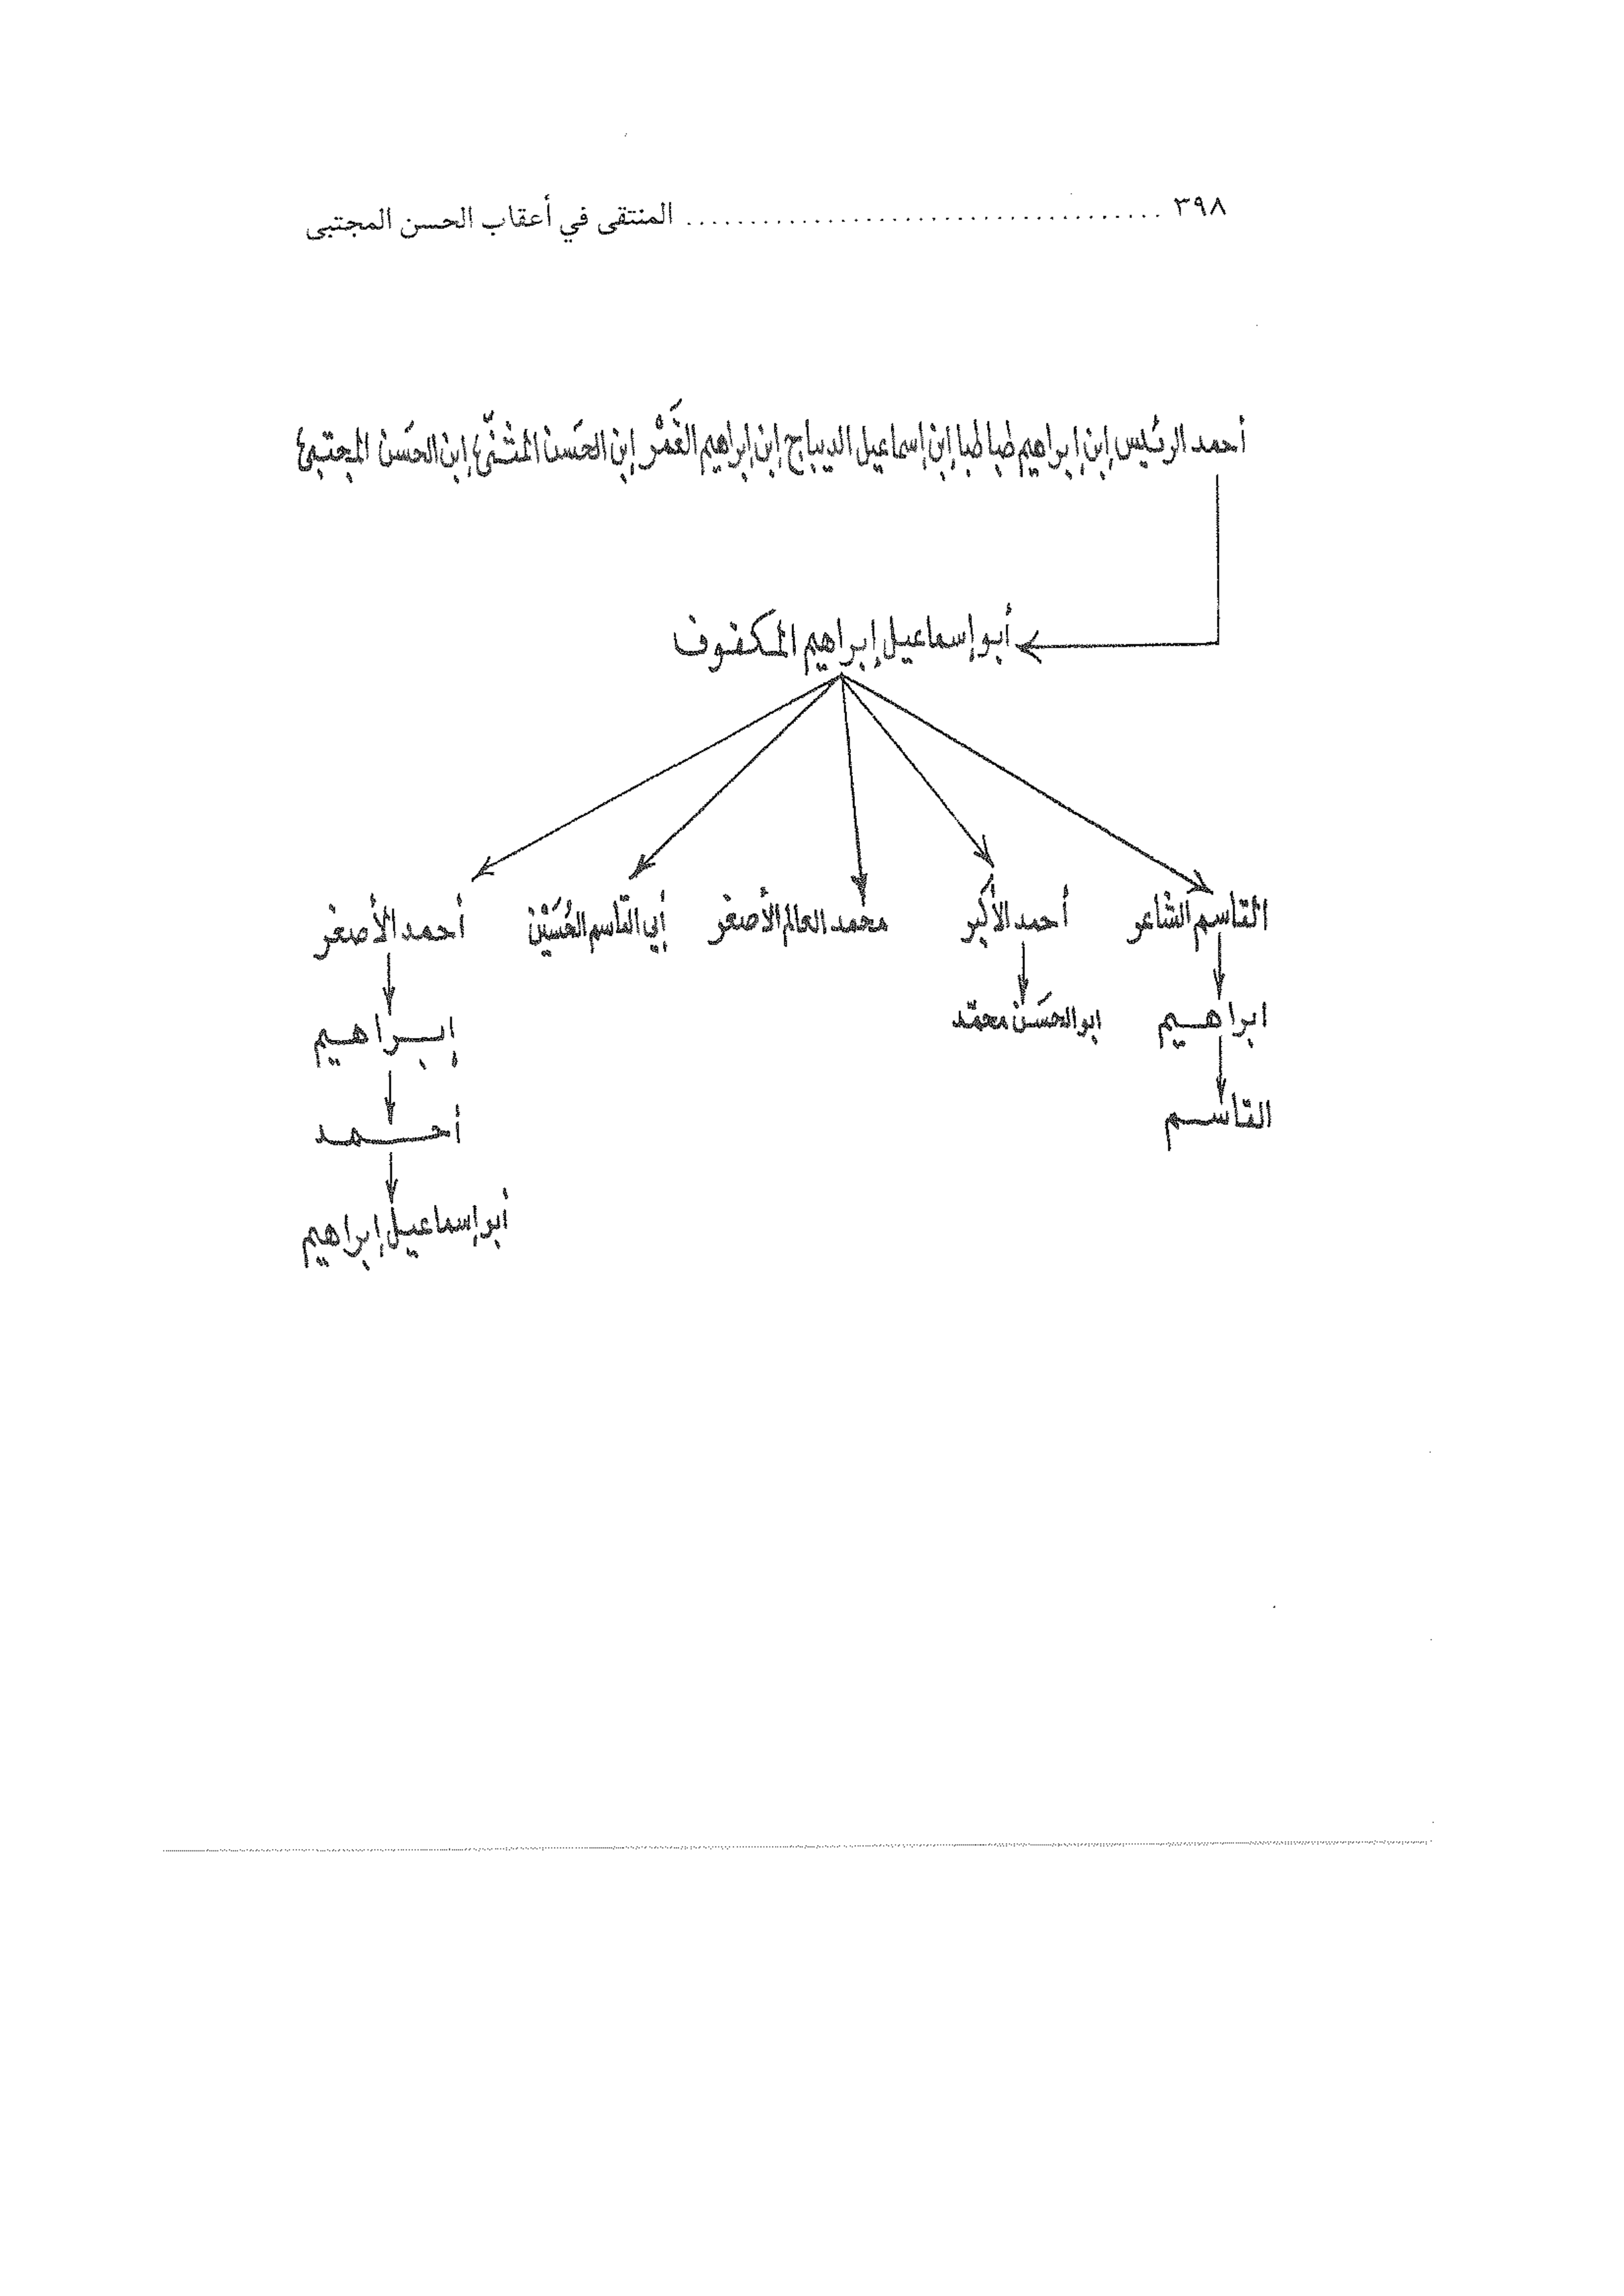 ٣٩٨ .................................... المنتقى في أعقاب الحسن المجتبى
أحمد الرئيس إبن إبراهيم طباطبا إبن إسماعيل الديباج إبن إبراهيم الغَمْر إبن الحَسن المثنّىٰ إبن الحَسَن المجتبىٰ
أبو إسماعيل إبراهيم المكفوف
القاسم الشاعر أحمد الأكبر محمد العالم الأصغر أبي القاسم الحُسَيْن أحمد الأصغر
ابراهيم ابو الحسَن محمّد إبراهيم
القاسم أحمد
أبو إسماعيل إبراهيم